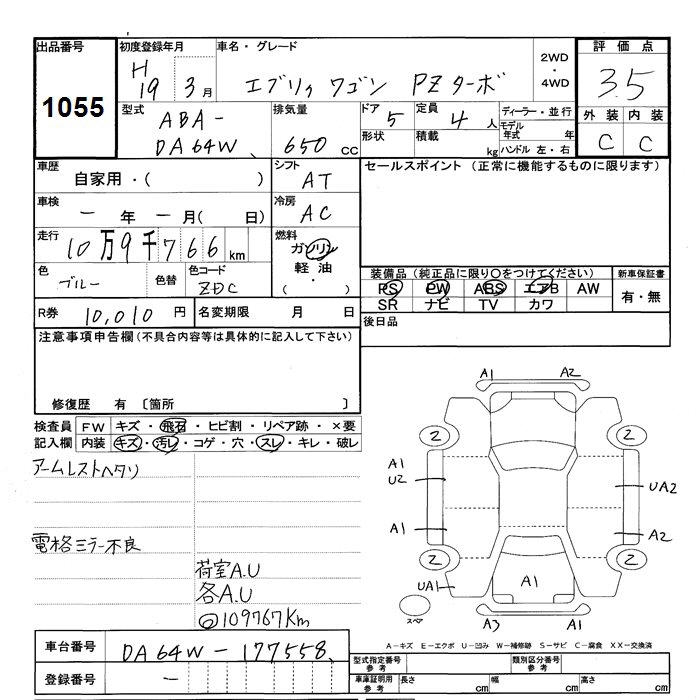 出品番号 初度登録年月 車名・グレード 2WD・4WD 評価点
1055 H19 3月 エブリィ ワゴン PZターボ 3.5
型式 排気量 ドア 定員 ディーラー・並行 外装 内装
ABA-DA64W 650cc 5 4人 モデル年式 年 C C
形状 積載 kg ハンドル 左・右
車歴 シフト セールスポイント (正常に機能するものに限ります)
自家用・( ) AT
車検 冷房
ー年ー月( 日) AC
走行 燃料
10万9千766km ガソリン
軽油
・( )
色 色替 色コード 装備品 (純正品に限り〇をつけてください) 新車保証書
ブルー ZDC PS PW ABS エアB AW 有・無
SR ナビ TV カワ
R券 10,010円 名変期限 月 日 後日品
注意事項申告欄(不具合内容等は具体的に記入して下さい)
修復歴 有 〔箇所 〕
検査員 FW キズ・飛石・ヒビ割・リペア跡・×要
記入欄 内装 キズ・汚レ・コゲ・穴・スレ・キレ・破レ
アームレストヘタリ
電格ミラー不良
荷室A.U
各A.U
◎109767Km
A1 A2
2 2
A1
U2 UA2
A1 A2
2 2
UA1 A1
スペア A3 A1
A-キズ E-エクボ U-凹み W-補修跡 S-サビ C-腐食 XX-交換済
車台番号 DA64W-177558
登録番号 ー
型式指定番号 参考 類別区分番号 参考
車庫証明用 参考 長さ cm 幅 cm 高さ cm